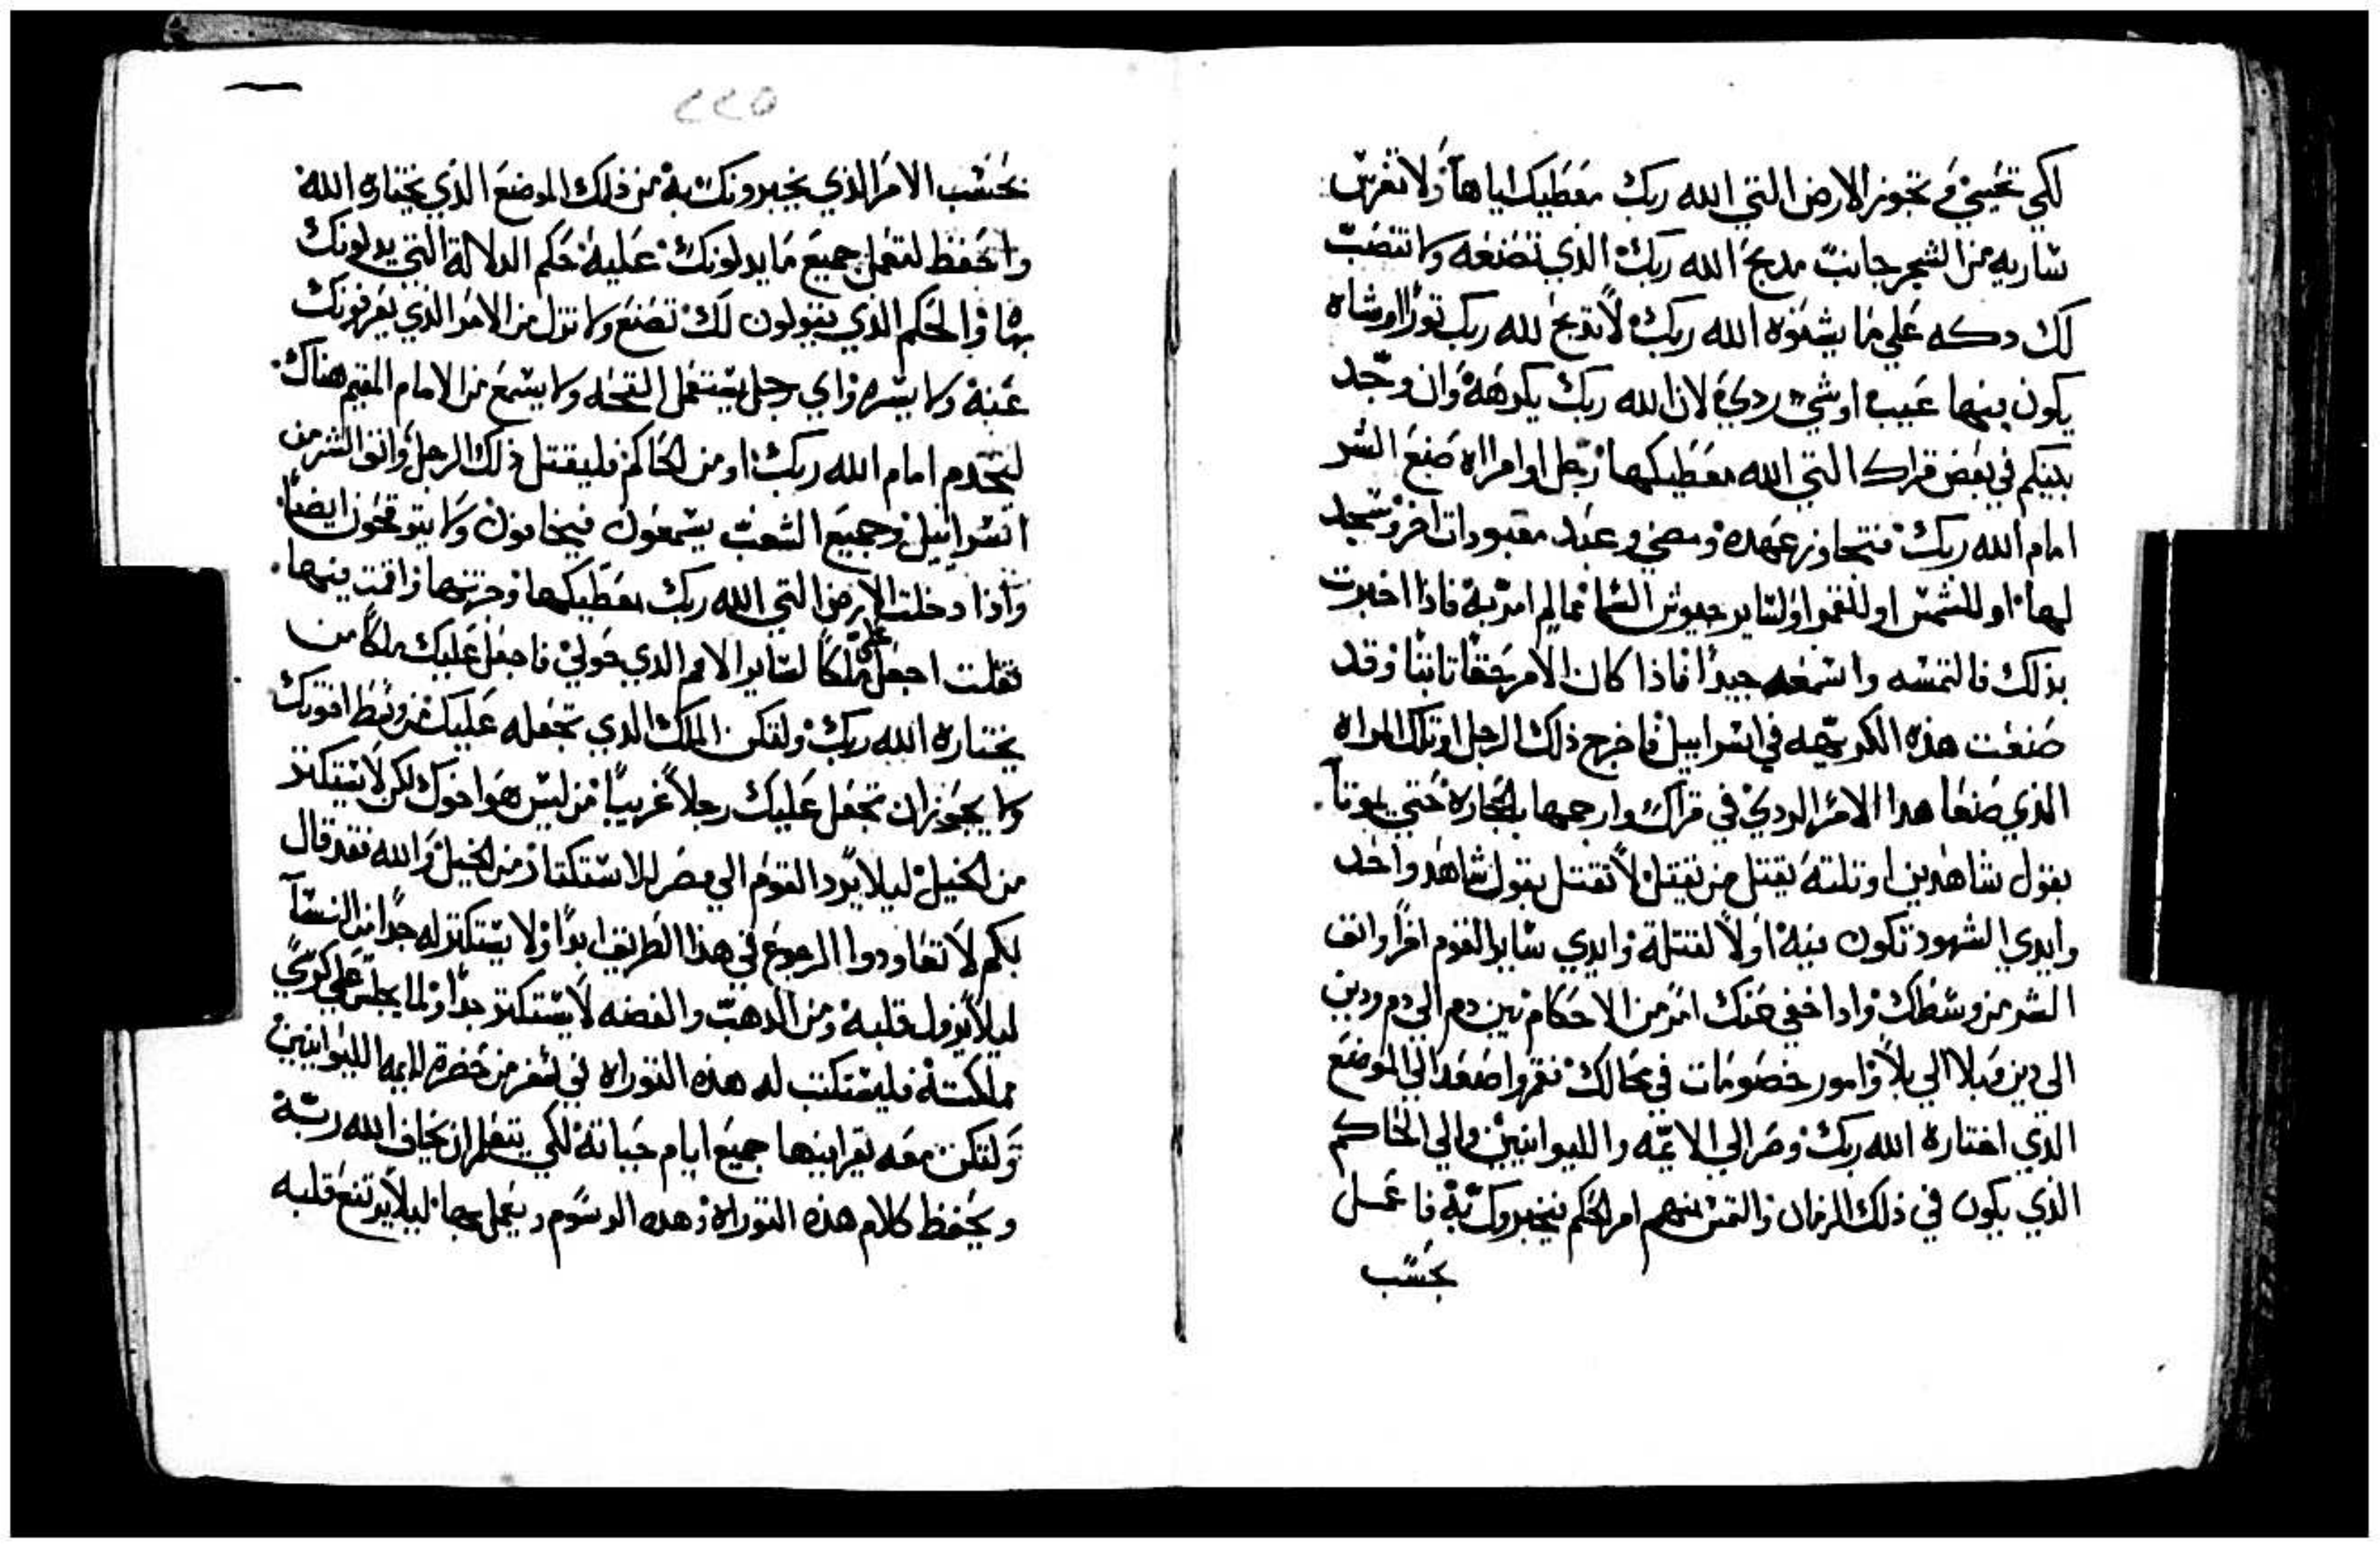 لكي تحيي وتحوز الارض التي الله ربك معطيك اياها ولا تغرس
ساريه من الشجر جانب مدبح الله ربك الذي تصنعه ولا تنصب
لك دكه علي ما يشنوه الله ربك لا تدبح لله ربك تورا او شاه
يكون فيها عيب او شي ردي لان الله ربك يكرهه وان وجد
بينكم في بعض قراك التي الله معطيكها رجل او امراه صنع الشر
امام الله ربك فتجاوز عهده ومضي وعبد معبودات اخر وسجد
لها او للشمس او للقمر او لساير جيوش السما مما لم امر به فاذا اخبرت
بذلك فالتمسه واسمعه جيدا فاذا كان الامر حقا ثابتا وقد
صنعت هذه الكريهه في اسراييل فاخرج ذلك الرجل او تلك المراه
الذي صنعا هدا الامر الردي في قراك وارجمها بالحجاره حتي يموتا
بقول شاهدين او تلته يقتل من يقتل لا تقتل بقول شاهد واحد
وايدي الشهود تكون فيه اولا لقتله وايدي ساير القوم اخرا وانف
الشر من وسطك وادا خفي عنك امر من الاحكام بين دم الي دم ودين
الى دين وبلا الي بلا وامور خصومات في محالك فقم واصعد الي الموضع
الذي اختاره الله ربك وصر الي الايمه والليوانيين والي الحاكم
الذي يكون في ذلك الزمان والتمس منهم امر الحكم فيخبروك به فاعمل
بحسب
٢٢٥
بحسب الامر الذي يخبرونك به من ذلك الموضع الذي يختاره الله
واحفظ لتعمل جميع ما يدلونك عليه حكم الدلالة التي يدلونك
بها والحكم الذي يقولون لك تصنع ولا تزل من الامر الذي يعرفونك
عنه ولا يسره واي رجل يستعمل القحه ولا يسمع من الامام المقيم هناك
ليخدم امام الله ربك او من الحاكم فليقتل ذلك الرجل وانف الشر من
اسراييل وجميع الشعب يسمعون فيخافون ولا يتوقحون ايضا
واذا دخلت الارض التي الله ربك معطيكها وحزتها واقمت فيها
فقلت اجعل علي ملكا لساير الامم الدي حولي فاجعل عليك ملكا من
يختاره الله ربك ولتكن الملك الدي تجعله عليك من وسط اخوتك
ولا يجوز ان تجعل عليك رجلا غريبا من ليس هو اخوك لكن لا يستكتر
من الخيل ليلا يرد القوم الي مصر للاستكتار من الخيل والله فقد قال
لكم لا تعاودوا الرجوع في هذا الطريق ابدا ولا يستكتر له جدا من النسا
ليلا يزول قلبه ومن الدهب والفضه لا يستكتر جدا ولما يجلس علي كرسي
مملكته فليستكتب له هذه التوراه في سفر من حضرة الايمه الليوانيين
ولتكن معه يقرا فيها جميع ايام حياته لكي يتعلم ان يخاف الله ربه
ويحفظ كلام هذه التوراه وهده الرسوم ويعمل بها ليلا يرتفع قلبه